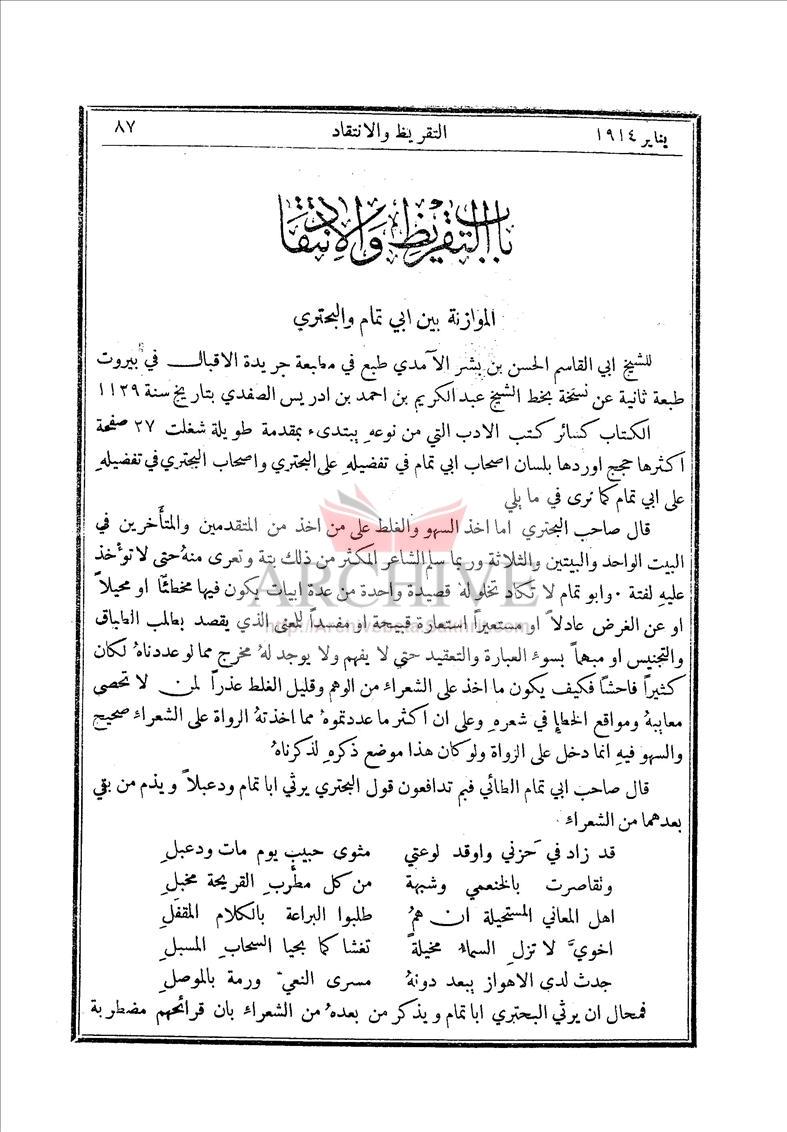 يناير ١٩١٤
التقريظ والانتقاد
٨٧
باب التقريظ والانتقاد
الموازنة بين ابي تمام والبحتري
للشيخ ابي القاسم الحسن بن بشر الآمدي طبع في مطبعة جريدة الاقبال في بيروت
طبعة ثانية عن نسخة بخط الشيخ عبد الكريم بن احمد بن ادريس الصفدي بتاريخ سنة ١١٢٩
الكتاب كسائر كتب الادب التي من نوعه يبتدىء بمقدمة طويلة شغلت ٢٧ صفحة
اكثرها حجج اوردها بلسان اصحاب ابي تمام في تفضيله على البحتري واصحاب البحتري في تفضيله
على ابي تمام كما ترى في ما يلي
قال صاحب البحتري اما اخذ السهو والغلط على من اخذ من المتقدمين والمتأخرين في
البيت الواحد والبيتين والثلاثة وربما سلم الشاعر المكثر من ذلك بتة وتعرى منهُ حتى لا تؤخذ
عليهِ لفتة ٠ وابو تمام لا تكاد تخلو لهُ قصيدة واحدة من عدة ابيات يكون فيها مخطئًا او محيلاً
او عن الغرض عادلاً او مستعيراً استعارة قبيحة او مفسداً للمعنى الذي يقصد بطلب الطباق
والتجنيس او مبهماً بسوء العبارة والتعقيد حتى لا يفهم ولا يوجد لهُ مخرج مما لو عددناهُ لكان
كثيراً فاحشاً فكيف يكون ما اخذ على الشعراء من الوهم وقليل الغلط عذراً لمن لا تحصى
معايبهُ ومواقع الخطإ في شعرهِ وعلى ان اكثر ما عددتموهُ مما اخذتهُ الرواة على الشعراء صحيح
والسهو فيهِ انما دخل على الرواة ولو كان هذا موضع ذكرهِ لذكرناهُ
قال صاحب ابي تمام الطائي فبم تدافعون قول البحتري يرثي ابا تمام ودعبلاً ويذم من بقي
بعدهما من الشعراء
قد زاد في حَزني واوقد لوعتي مثوى حبيبٍ يوم مات ودعبلِ
وتقاصرت بالخثعمي وشبهة من كل مطّربِ القريحة مخبلِ
اهل المعاني المستحيلة ان همُ طلبوا البراعة بالكلام المقفَلِ
اخويَّ لا تزلِ السماءُ مخيلةً تغشا كما بحيا السحابِ المسبلِ
جدث لدى الاهواز يبعد دونهُ مسرى النعيّ ورمة بالموصلِ
فمحال ان يرثي البحتري ابا تمام ويذكر من بعدهُ من الشعراء بان قرائحهم مضطربة
ARCHIVE